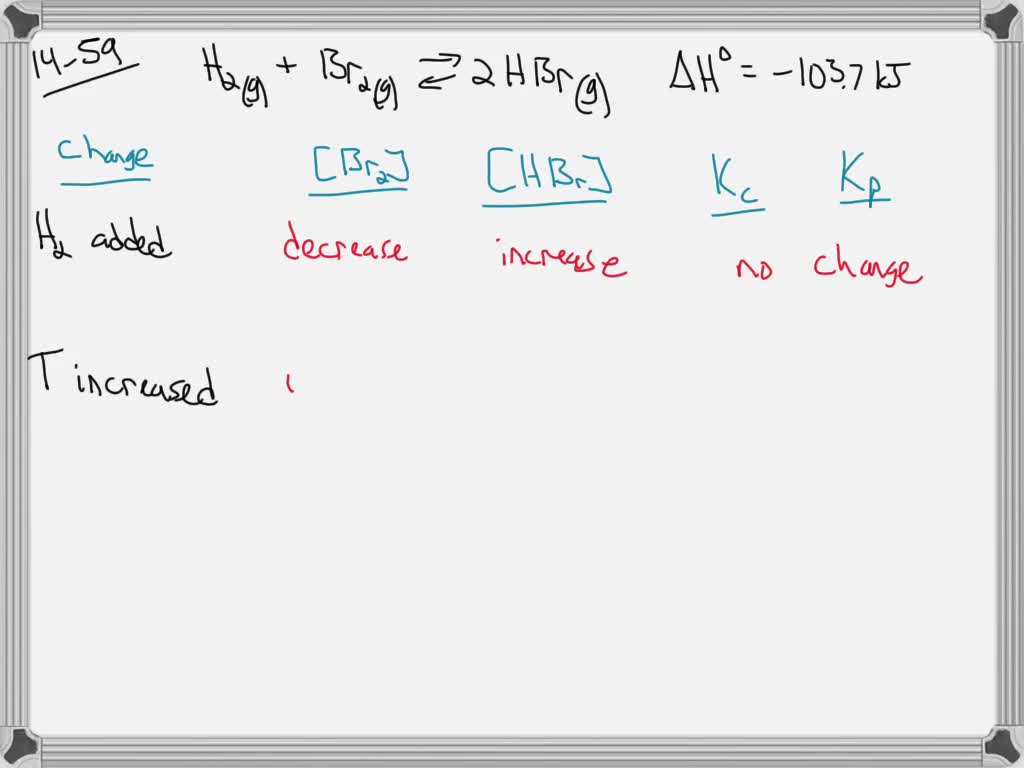 14-59 H₂(g) + Br₂(g) ⇌ 2HBr(g) ΔH° = -103.7 kJ
change [Br₂] [HBr] Kc Kp
H₂ added decrease increase no change
T increased